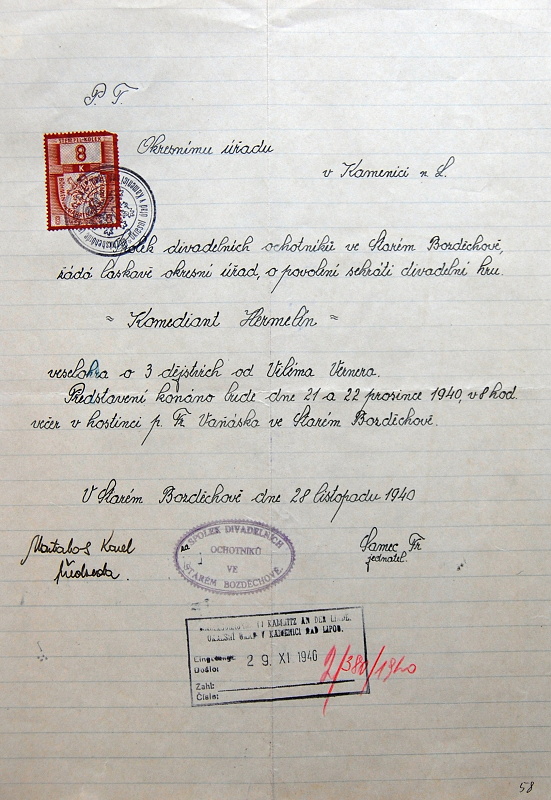 P. T.
STEMPEL-KOLEK
8
K
Okresnímu úřadu
v Kamenici n. L.
Spolek divadelních ochotníků ve Starém Bozděchově,
žádá laskavě okresní úřad, o povolení sehráti divadelní hru.
" Komediant Hermelín "
veselohra o 3 dějstvích od Viléma Vernera.
Představení konáno bude dne 21 a 22 prosince 1940, v 8 hod.
večer v hostinci p. Fr. Vaňáska ve Starém Bozděchově.
V Starém Bozděchově dne 28 listopadu 1940
Karel
předseda.
SPOLEK DIVADELNÍCH
OCHOTNÍKŮ
VE
STARÉM BOZDĚCHOVĚ.
Samec Fr
jednatel.
IN KAMNITZ AN DER LINDE.
OKRESNÍ ÚŘAD V KAMENICI NAD LIPOU.
Eingelangt:
Došlo:
29. XI 1940
Zahl:
Číslo:
2/380/1940
58